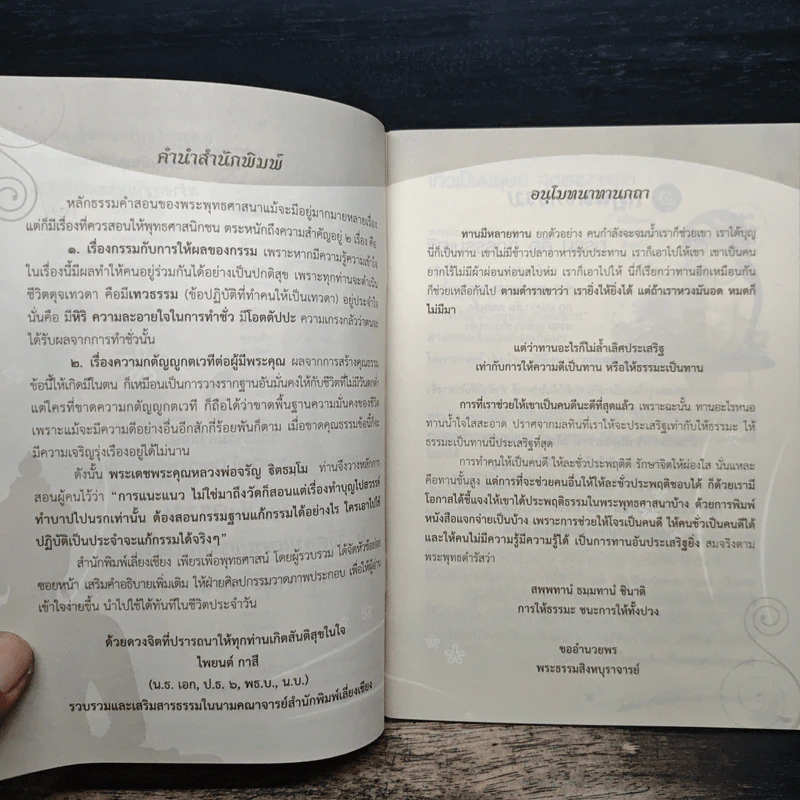 คำนำสำนักพิมพ์
หลักธรรมคำสอนของพระพุทธศาสนาแม้จะมีอยู่มากมายหลายเรื่อง
แต่ก็มีเรื่องที่ควรสอนให้พุทธศาสนิกชน ตระหนักถึงความสำคัญอยู่ ๒ เรื่อง คือ
๑. เรื่องกรรมกับการให้ผลของกรรม เพราะหากมีความรู้ความเข้าใจ
ในเรื่องนี้มีผลทำให้คนอยู่ร่วมกันได้อย่างเป็นปกติสุข เพราะทุกท่านจะดำเนิน
ชีวิตดุจเทวดา คือมีเทวธรรม (ข้อปฏิบัติที่ทำคนให้เป็นเทวดา) อยู่ประจำใจ
นั่นคือ มีหิริ ความละอายใจในการทำชั่ว มีโอตตัปปะ ความเกรงกลัวว่าตนจะ
ได้รับผลจากการทำชั่วนั้น
๒. เรื่องความกตัญญูกตเวทีต่อผู้มีพระคุณ ผลจากการสร้างคุณธรรม
ข้อนี้ให้เกิดมีในตน ก็เหมือนเป็นการวางรากฐานอันมั่นคงให้กับชีวิตที่ไม่มีวันตกต่ำ
แต่ใครที่ขาดความกตัญญูกตเวที ก็ถือได้ว่าขาดพื้นฐานความมั่นคงของชีวิต
เพราะแม้จะมีความดีอย่างอื่นอีกสักกี่ร้อยพันก็ตาม เมื่อขาดคุณธรรมข้อนี้ก็จะ
มีความเจริญรุ่งเรืองอยู่ได้ไม่นาน
ดังนั้น พระเดชพระคุณหลวงพ่อจรัญ ฐิตธมฺโม ท่านจึงวางหลักการ
สอนผู้คนไว้ว่า “การแนะแนว ไม่ใช่มาถึงวัดก็สอนแต่เรื่องทำบุญไปสวรรค์
ทำบาปไปนรกเท่านั้น ต้องสอนกรรมฐานแก้กรรมได้อย่างไร ใครเอาไปใช้
ปฏิบัติเป็นประจำจะแก้กรรมได้จริงๆ”
สำนักพิมพ์เลี่ยงเชียง เพียรเพื่อพุทธศาสน์ โดยผู้รวบรวม ได้จัดหัวข้อย่อย
ซอยหน้า เสริมคำอธิบายเพิ่มเติม ให้ฝ่ายศิลปกรรมวาดภาพประกอบ เพื่อให้ผู้อ่าน
เข้าใจง่ายขึ้น นำไปใช้ได้ทันทีในชีวิตประจำวัน
ด้วยดวงจิตที่ปรารถนาให้ทุกท่านเกิดสันติสุขในใจ
ไพยนต์ กาสี
(น.ธ. เอก, ป.ธ. ๖, พธ.บ., น.บ.)
รวบรวมและเสริมสารธรรมในนามคณาจารย์สำนักพิมพ์เลี่ยงเชียง
อนุโมทนาทานกถา
ทานมีหลายทาน ยกตัวอย่าง คนกำลังจะจมน้ำเราก็ช่วยเขา เราได้บุญ
นี่ก็เป็นทาน เขาไม่มีข้าวปลาอาหารรับประทาน เราก็เอาไปให้เขา เขาเป็นคน
ยากไร้ไม่มีผ้าผ่อนท่อนสไบห่ม เราก็เอาไปให้ นี่ก็เรียกว่าทานอีกเหมือนกัน
ก็ช่วยเหลือกันไป ตามตำราเขาว่า เรายิ่งให้ยิ่งได้ แต่ถ้าเราหวงมันอด หมดก็
ไม่มีมา
แต่ว่าทานอะไรก็ไม่ล้ำเลิศประเสริฐ
เท่ากับการให้ความดีเป็นทาน หรือให้ธรรมะเป็นทาน
การที่เราช่วยให้เขาเป็นคนดีนะดีที่สุดแล้ว เพราะฉะนั้น ทานอะไรหนอ
ทานน้ำใจใสสะอาด ปราศจากมลทินที่เราให้จะประเสริฐเท่ากับให้ธรรมะ ให้
ธรรมะเป็นทานนี่ประเสริฐที่สุด
การทำคนให้เป็นคนดี ให้ละชั่วประพฤติดี รักษาจิตให้ผ่องใส นั่นแหละ
คือทานชั้นสูง แต่การที่จะช่วยคนอื่นให้ให้ละชั่วประพฤติชอบได้ ก็ด้วยเรามี
โอกาสได้ชี้แจงให้เขาได้ประพฤติธรรมในพระพุทธศาสนาบ้าง ด้วยการพิมพ์
หนังสือแจกจ่ายเป็นบ้าง เพราะการช่วยให้โจรเป็นคนดี ให้คนชั่วเป็นคนดีได้
และให้คนไม่มีความรู้มีความรู้ได้ เป็นการทานอันประเสริฐยิ่ง สมจริงตาม
พระพุทธดำรัสว่า
สพฺพทานํ ธมฺมทานํ ชินาติ
การให้ธรรมะ ชนะการให้ทั้งปวง
ขออำนวยพร
พระธรรมสิงหบุราจารย์